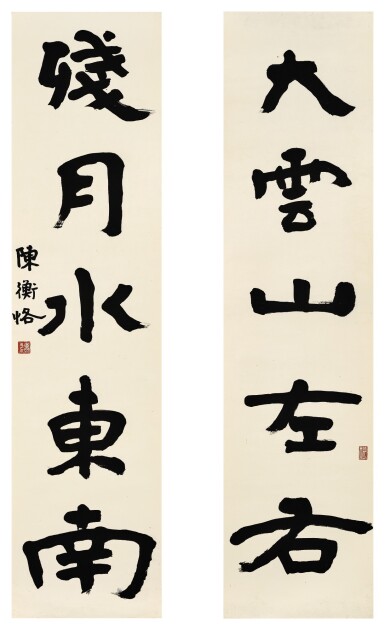 大雲山左右
殘月水東南
陳衡恪